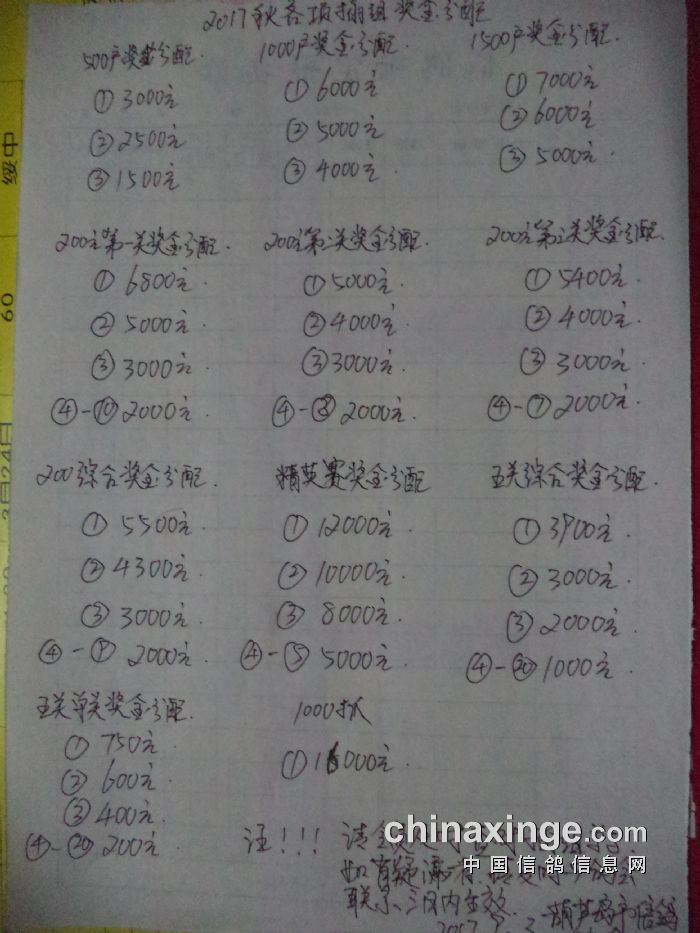 2017秋各项插组奖金分配
500户奖金分配 1000户奖金分配 1500户奖金分配.
①3000元 ①6000元 ①7000元
②2500元 ②5000元 ②6000元
③1500元 ③4000元 ③5000元
200元第一关奖金分配. 200元第二关奖金分配. 200元第三关奖金分配.
①6800元. ①5000元. ①5400元.
②5000元. ②4000元. ②4000元.
③3000元. ③3000元. ③3000元.
④-⑩2000元. ④-⑧2000元. ④-⑦2000元.
200综合奖金分配. 精英赛奖金分配 五关综合奖金分配.
①5500元. ①12000元. ①3900元.
②4300元. ②10000元. ②3000元.
③3000元. ③8000元. ③2000元.
④- 2000元. ④-⑤5000元. ④-⑳1000元.
五关单关奖金分配. 1000
①750元. ①16000元.
②600元.
③400元.
④-⑳200元. 注!!! 请
如有疑
联系.三日内生效.
2017 葫芦岛市信鸽
chinaxinge.com
中国信鸽信息网
绥中
60
2月24日